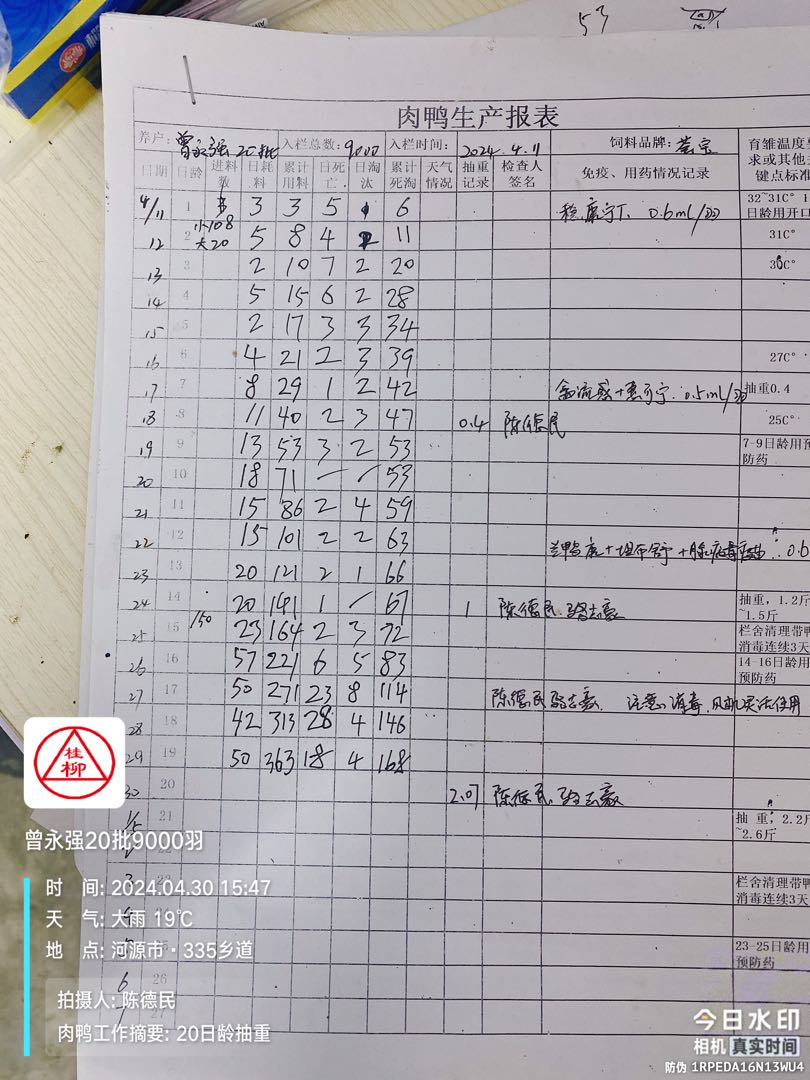 53
肉鸭生产报表
养户: 曾永强 20批 入栏总数: 9000 入栏时间: 2024.4.11 饲料品牌: 育雏温度
求或其他
键点标准
日期 日龄 进料数 日耗料 累计用料 日死亡 日淘汰 累计死淘 天气情况 抽重记录 检查人签名 免疫、用药情况记录
4/11 1 3 3 5 1 6 0.6mL/羽 32~31C° 1
日龄用开口
12 2 小108 大20 5 8 4 2 11 31C°
13 3 2 10 7 2 20 30C°
14 4 5 15 6 2 28
15 5 2 17 3 3 34
16 6 4 21 2 3 39 27C°
17 7 8 29 1 2 42 禽流感+ 0.5mL/羽 抽重0.4
18 8 11 40 2 3 47 0.4 陈德民 25C°
19 9 13 53 3 2 53 7-9日龄用预
防药
20 10 18 71 — — 53
21 11 15 86 2 4 59
22 12 15 101 2 2 63 0.6
23 13 20 121 2 1 66
24 14 20 141 1 — 67 1 陈德民 抽重，1.2斤
~1.5斤
25 15 150 23 164 2 3 72 栏舍清理带鸭
消毒连续3天
26 16 57 221 6 5 83 14-16日龄用
预防药
27 17 50 271 23 8 114 陈德民 注意消毒,风机灵活使用
28 18 42 313 28 4 146
29 19 50 363 18 4 168
30 20 2.07 陈德民
1/5 21 抽 重，2.2斤
~2.6斤
3 栏舍清理带鸭
消毒连续3天
4
23-25日龄用
预防药
6 26
7 27
桂柳
曾永强20批9000羽
时 间: 2024.04.30 15:47
天 气: 大雨 19℃
地 点: 河源市·335乡道
拍摄人: 陈德民
肉鸭工作摘要: 20日龄抽重
今日水印
相机 真实时间
防伪 1RPEDA16N13WU4